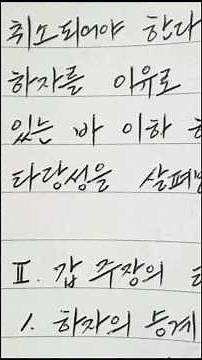 취소되어야 한다
하자를 이유로
있는 바 이하
타당성을 살펴
Ⅱ. 갑 주장의
1. 하자의 승계